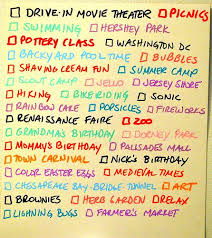 DRIVE-IN MOVIE THEATER PICNICS
SWIMMING HERSHEY PARK
POTTERY CLASS WASHINGTON DC
BACKYARD POOL TIME BUBBLES
SHAVING CREAM FUN SUMMER CAMP
SCOUT CAMP JELLO JERSEY SHORE
HIKING BIKE RIDING SONIC
RAINBOW CAKE POPSICLES FIREWORKS
RENAISSANCE FAIRE ZOO
GRANDMA'S BIRTHDAY DORNEY PARK
MOMMY'S BIRTHDAY PALISADES MALL
TOWN CARNIVAL NICK'S BIRTHDAY
COLOR EASTER EGGS MEDIEVAL TIMES
CHESAPEAKE BAY BRIDGE TUNNEL ART
BROWNIES HERB GARDEN RELAX
LIGHNING BUGS FARMER'S MARKET